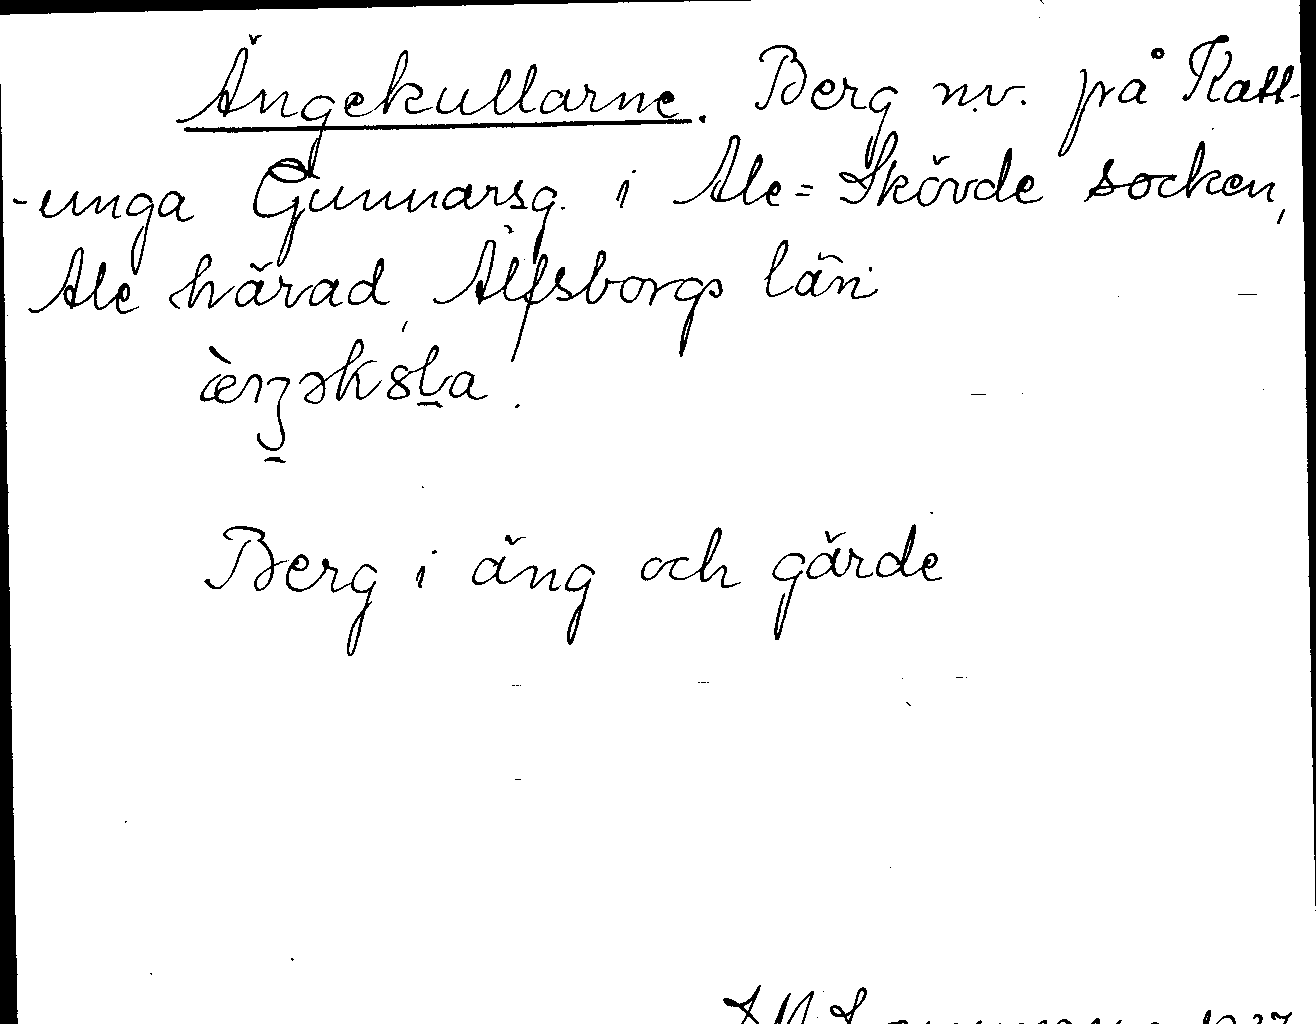 Ängekullarne. Berg n.v. på Katt-
-unga Gunnarsg. i Ale=Skövde socken,
Ale härad, Älfsborgs län
Berg i äng och gärde